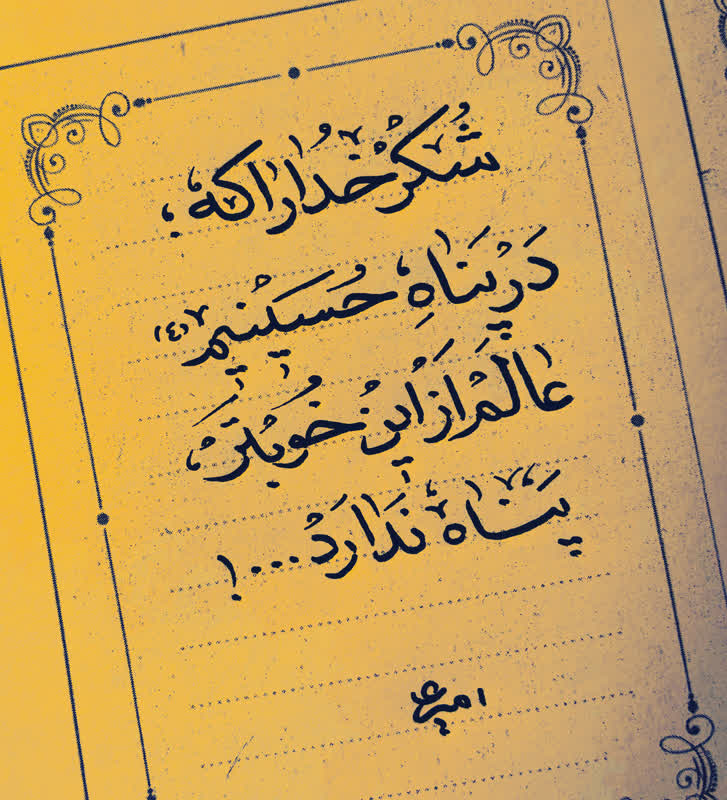 شُکرْ خُدا را کِه،
دَرْ پَناهِ حُسِینیم (ع)
عالَمْ اَز اینْ خُوبتَرْ
پَناه نَدارَدْ...!